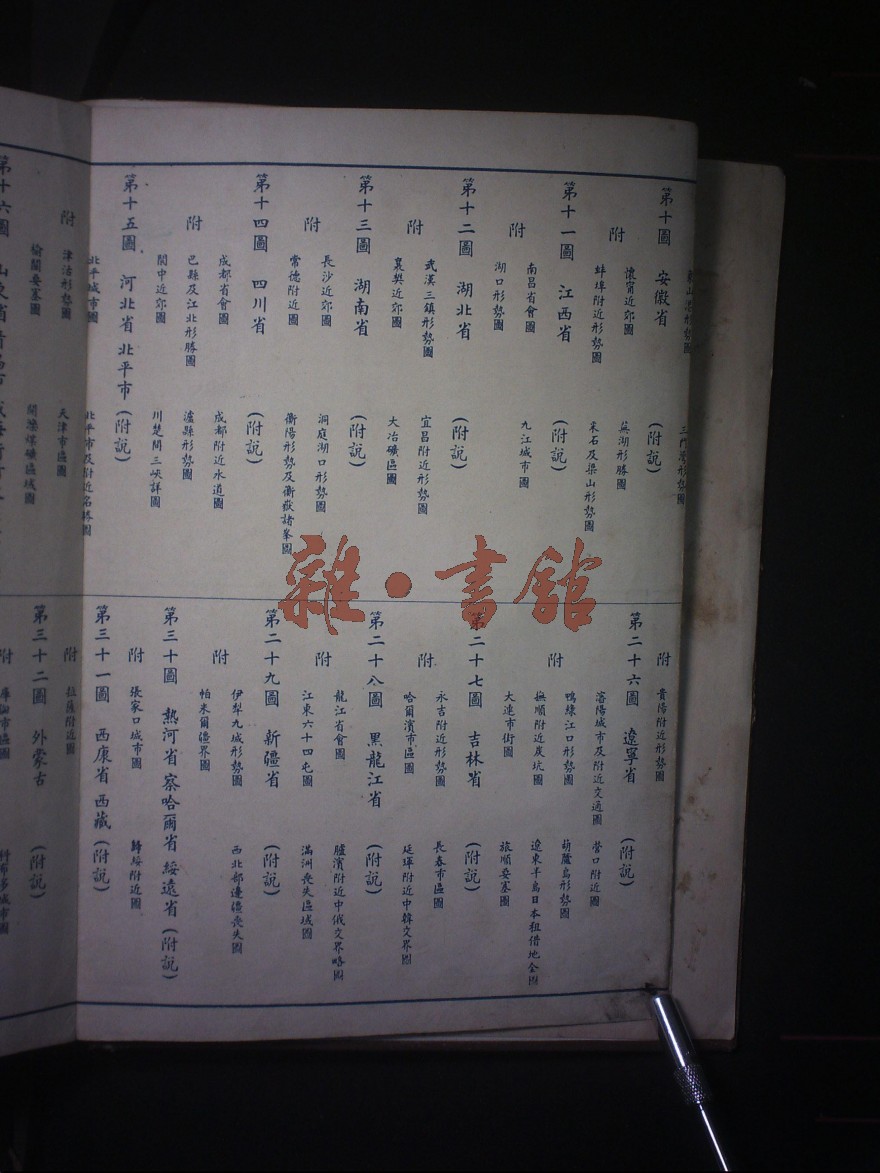 象山港形勢圖 三門灣形勢圖
第十圖 安徽省 (附說)
附 懷甯近郊圖 蕪湖形勝圖
蚌埠附近形勢圖 采石及梁山形勢圖
第十一圖 江西省 (附說)
附 南昌省會圖 九江城市圖
湖口形勢圖
第十二圖 湖北省 (附說)
附 武漢三鎮形勢圖 宜昌附近形勢圖
襄樊近郊圖 大冶礦區圖
第十三圖 湖南省 (附說)
附 長沙近郊圖 洞庭湖口形勢圖
常德附近圖 衡陽形勢及衡嶽諸峯圖
第十四圖 四川省 (附說)
附 成都省會圖 成都附近水道圖
巴縣及江北形勝圖 瀘縣形勢圖
閬中近郊圖 川楚間三峽詳圖
第十五圖 河北省 北平市 (附說)
北平城市圖 北平市及附近名勝圖
附 津沽形勢圖 天津市區圖
榆關要塞圖 開灤煤礦區域圖
第十六圖 山東省 青島市 威海衛
附 貴陽附近形勢圖
第二十六圖 遼寧省 (附說)
瀋陽城市及附近交通圖 營口附近圖
附 鴨綠江口形勢圖 葫蘆島形勢圖
撫順附近炭坑圖 遼東半島日本租借地全圖
大連市街圖 旅順要塞圖
第二十七圖 吉林省 (附說)
附 永吉附近形勢圖 長春市區圖
哈爾濱市區圖 延琿附近中韓交界圖
第二十八圖 黑龍江省 (附說)
附 龍江省會圖 臚濱附近中俄交界略圖
江東六十四屯圖 滿洲喪失區域圖
第二十九圖 新疆省 (附說)
附 伊犁九城形勢圖 西北部邊疆喪失圖
帕米爾疆界圖
第三十圖 熱河省 察哈爾省 綏遠省 (附說)
附 張家口城市圖 歸綏附近圖
第三十一圖 西康省 西藏 (附說)
附 拉薩附近圖
第三十二圖 外蒙古 (附說)
附 庫倫市區圖 科布多城市圖
雜·書館